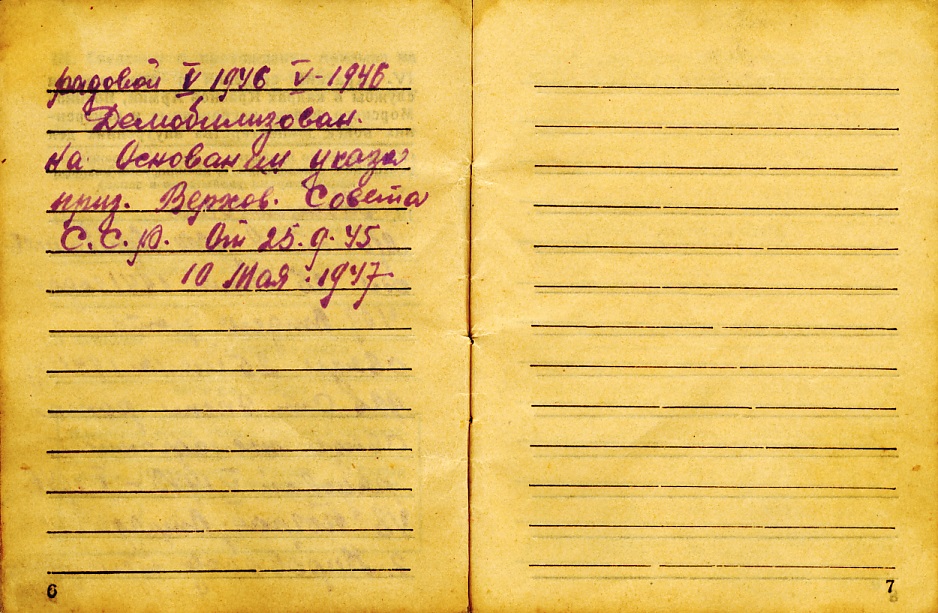 рядовой V 1946 V-1946
Демобилизован.
На Основании указа
през. Верхов. Совета
С.С.Р. От 25.9.45
10 Мая: 1947
6
7